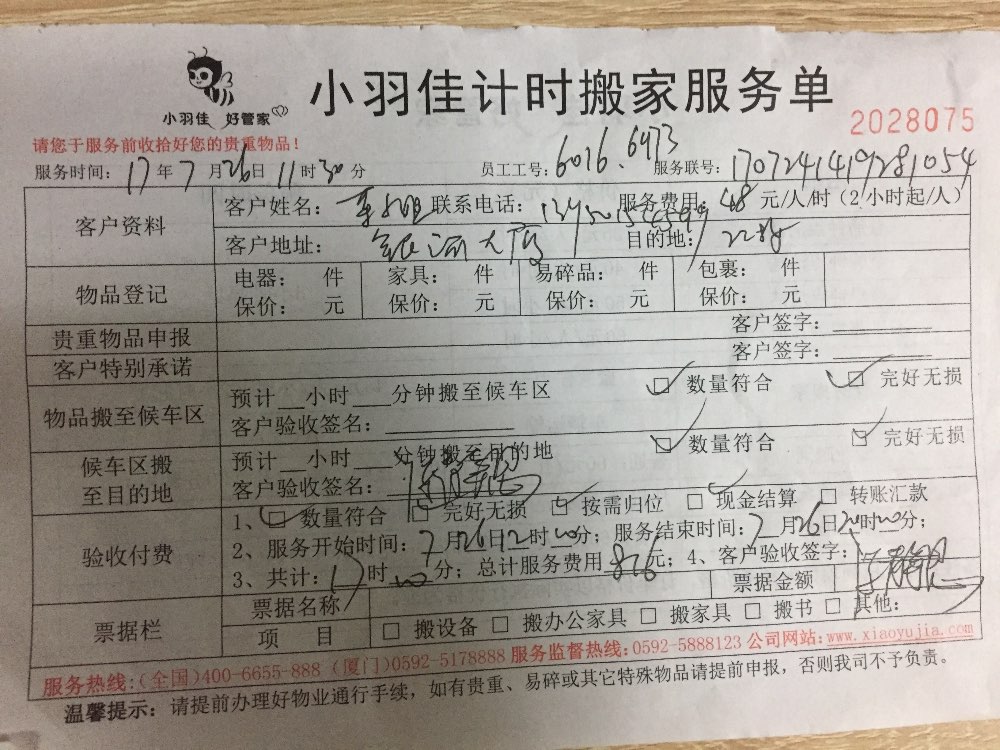 小羽佳 好管家
小羽佳计时搬家服务单
2028075
请您于服务前收拾好您的贵重物品！
服务时间：17年7月26日11时30分 员工工号：6016.6973 服务联号：1707241419281054
客户资料
客户姓名： 联系电话： 服务费用：48元/人/时（2小时起/人）
客户地址：银河大厦 目的地：
物品登记
电器： 件 家具： 件 易碎品： 件 包裹： 件
保价： 元 保价： 元 保价： 元 保价： 元
贵重物品申报 客户签字：
客户特别承诺 客户签字：
物品搬至候车区
预计 小时 分钟搬至候车区 数量符合 完好无损
客户验收签名：
候车区搬至目的地
预计 小时 分钟搬至目的地 数量符合 完好无损
客户验收签名：
验收付费
1、数量符合 完好无损 按需归位 现金结算 转账汇款
2、服务开始时间：7月26日 时 分；服务结束时间：7月26日 时 分；
3、共计： 时 分；总计服务费用 元；4、客户验收签字：
票据栏
票据名称 票据金额
项 目 搬设备 搬办公家具 搬家具 搬书 其他：
服务热线：(全国)400-6655-888 (厦门)0592-5178888 服务监督热线：0592-5888123 公司网站：www.xiaoyujia.com
温馨提示：请提前办理好物业通行手续，如有贵重、易碎或其它特殊物品请提前申报，否则我司不予负责。